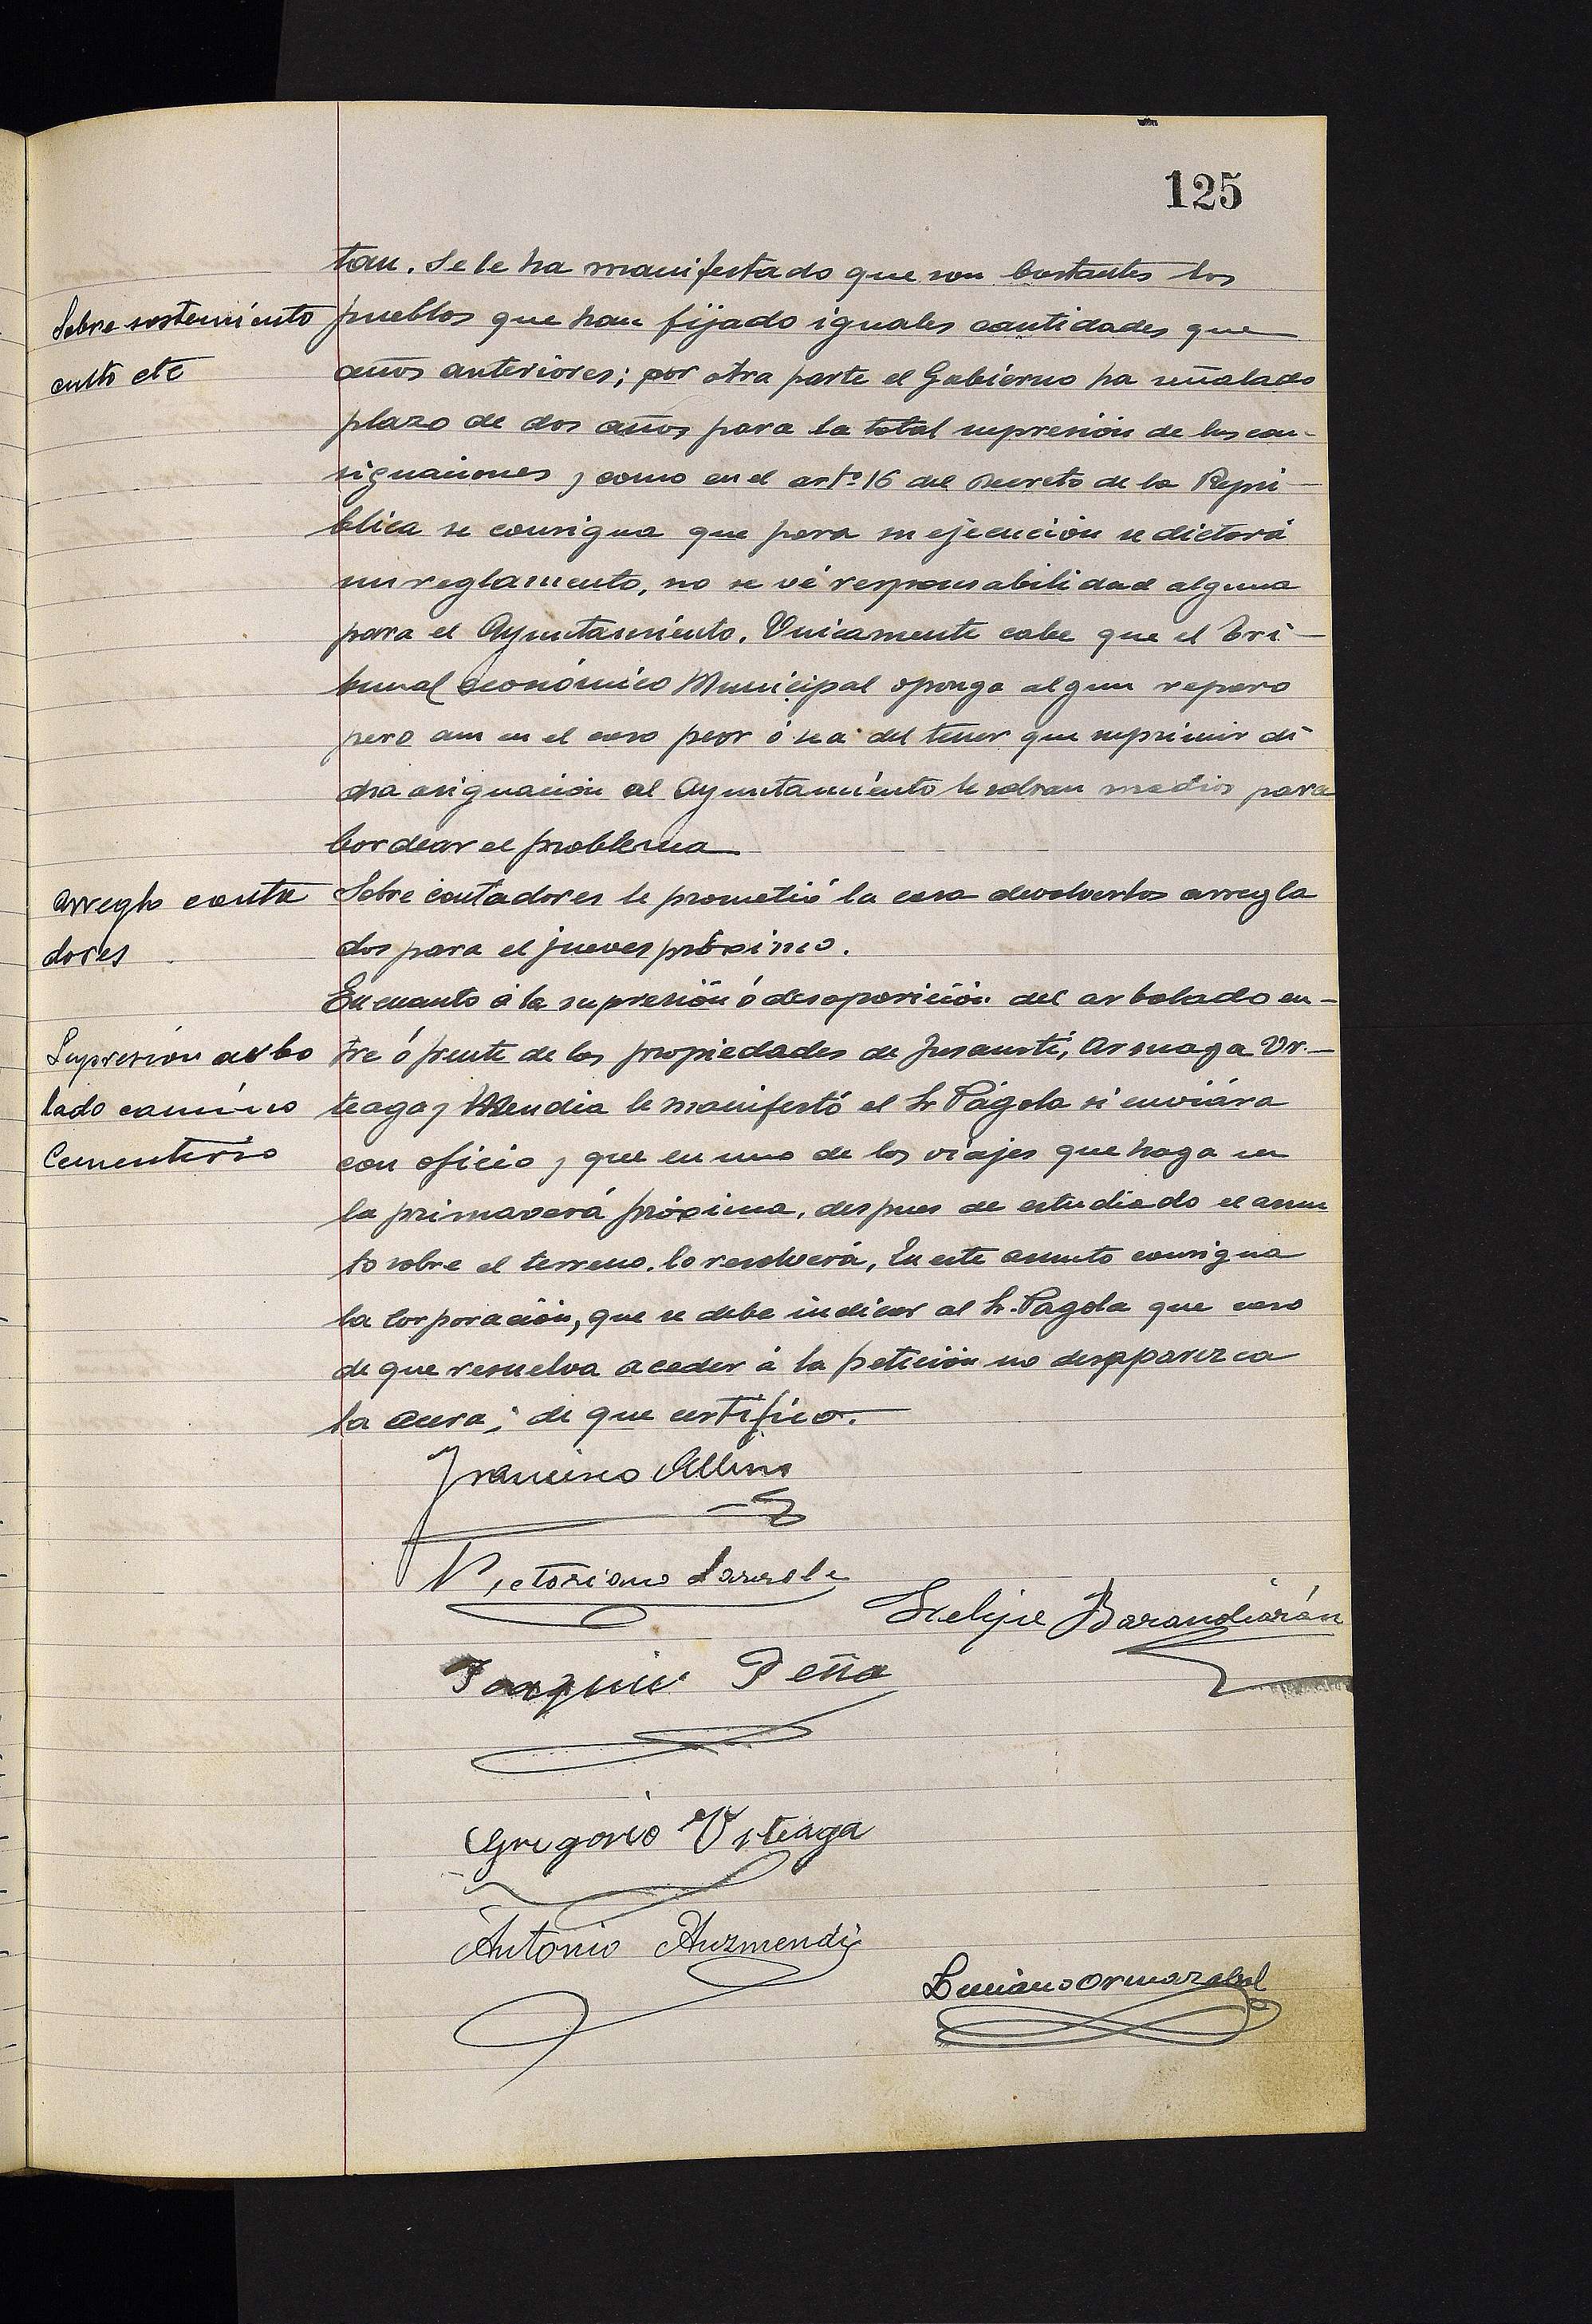 125
tan. Se le ha manifestado que son bastantes los
Sobre sostenimiento
culto etc
pueblos que han fijado iguales cantidades que
años anteriores; por otra parte el Gobierno ha señalado
plazo de dos años para la total supresión de las con-
signaciones y como en el artº 16 del Decreto de la Repú-
blica se consigna que para su ejecución se dictará
un reglamento, no se vé responsabilidad alguna
para el Ayuntamiento. Unicamente cabe que el Tri-
bunal económico Municipal oponga algun reparo
pero aun en el caso peor ó sea del tener que suprimir di
cha asignación al Ayuntamiento le sobran medios para
bordear el problema
Arreglo conta
dores
Sobre contadores le prometió la casa devolverlos arregla
dos para el jueves próximo.
En cuanto á la supresión ó desaparición del arbolado en-
Supresión arbo
lado camino
Cementerio
tre ó frente de las propiedades de Jusausti, Arsuaga Ur-
teaga y Mendia le manifestó el Sr Págola si enviára
con oficio y que en uno de los viajes que haga en
la primaverá próxima, despues de estudiado el asun
to sobre el terreno, lo resolverá, En este asunto consigna
la Corporación, que se debe indicar al Sr. Pagola que caso
de que resuelva acceder á la petición no desapparezca
la acera; de que certifico.
Francisco
Victoriano
Felipe Barandiarán
Joaquin Peña
Gregorio Urteaga
Antonio Auzmendi
Luciano Ormazabal